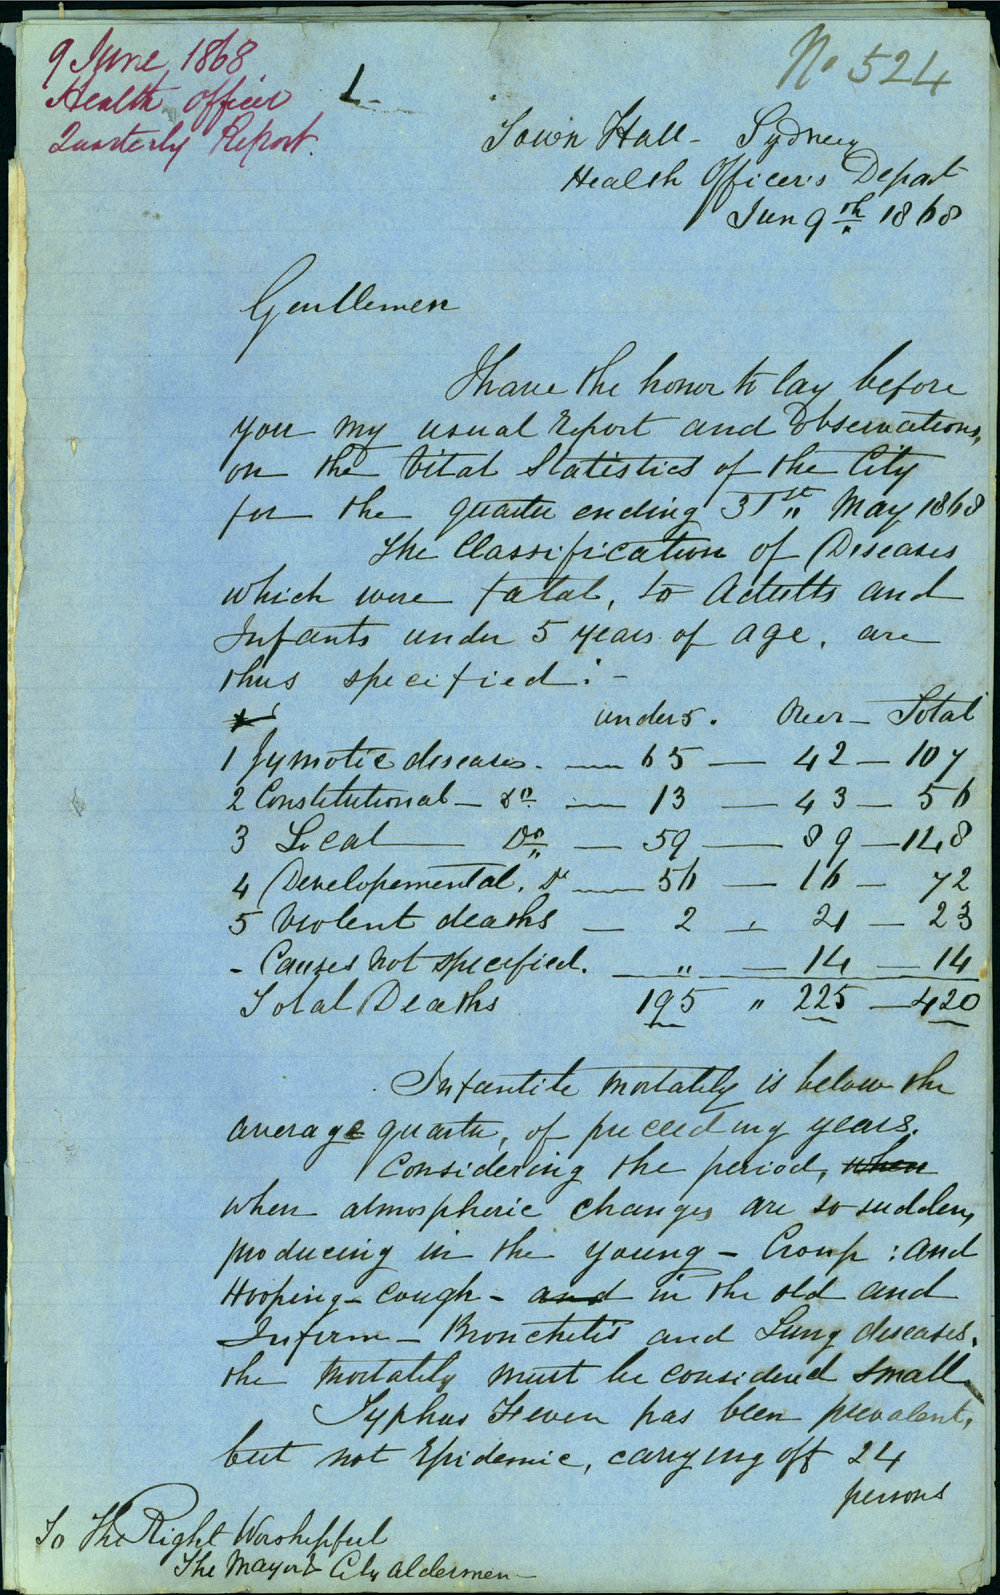 9 June 1868
Health Officer
Quarterly Report.
1
No 524
Town Hall - Sydney
Health Officer's Depart
Jun 9th 1868
Gentlemen
I have the honor to lay before
you my usual Report and Observations,
on the Vital Statistics of the City
for the quarter ending 31st May 1868
The Classification of Diseases
which were fatal, to Adults and
Infants under 5 years of age, are
thus specified:-
under 5. Over - Total
1 Zymotic diseases. — 65 — 42 — 107
2 Constitutional - Do — 13 — 43 — 56
3 Local — Do — 59 — 89 — 148
4 Developemental. Do — 56 — 16 — 72
5 Violent deaths — 2 — 21 — 23
- Causes not specified. — " — 14 — 14
Total Deaths 195 " 225 — 420
Infantile mortality is below the
average quarter, of preceeding years.
Considering the period, when
when atmospheric changes are so sudden,
producing in the young - Croup: and
Hooping-cough - and in the old and
Infirm - Bronchitis and Lung diseases,
the mortality must be considered small.
Typhus Fever has been prevalent,
but not Epidemic, carrying off 24
persons
To The Right Worshipful
The Mayor & City Aldermen -